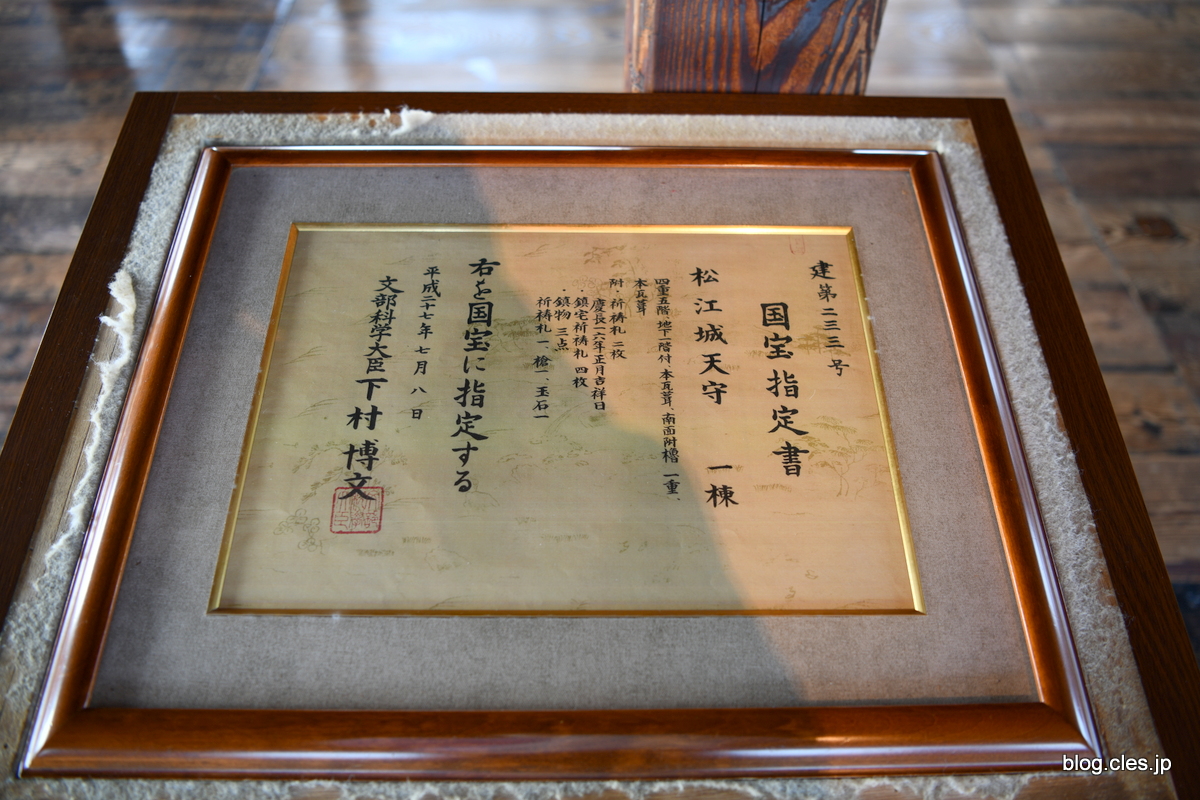 建第二三三号
国宝指定書
松江城天守 一棟
四重五階、地下一階付、本瓦葺、南面附櫓 一重、
本瓦葺
附・祈祷札 二枚
慶長一六年正月吉祥日
・鎮宅祈祷札 四枚
・鎮物 三点
祈祷札 一、槍一、玉石一
右を国宝に指定する
平成二十七年七月八日
文部科学大臣 下村博文
blog.cles.jp